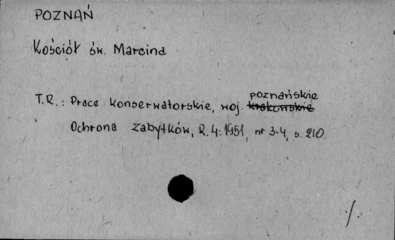 POZNAŃ
Kościół św. Marcina
T.R.: Prace konserwatorskie, woj. poznańskie krakowskie
Ochrona Zabytków, R.4: 1951, nr 3-4, s. 210.